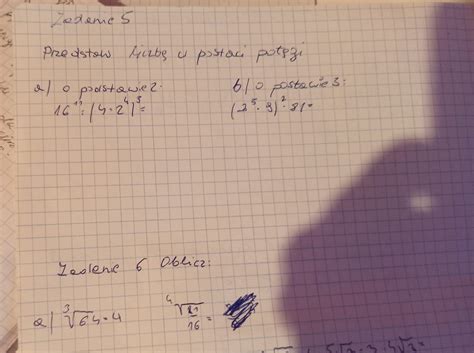 Zadanie 5
Przedstaw liczbę w postaci potęgi
a) o podstawie 2: b) o postawie 3:
16¹¹ : (4·2⁴)³= (3⁵·9)²·81=
Zadanie 6 Oblicz:
a) ³√64=4 ⁴√81/16 =